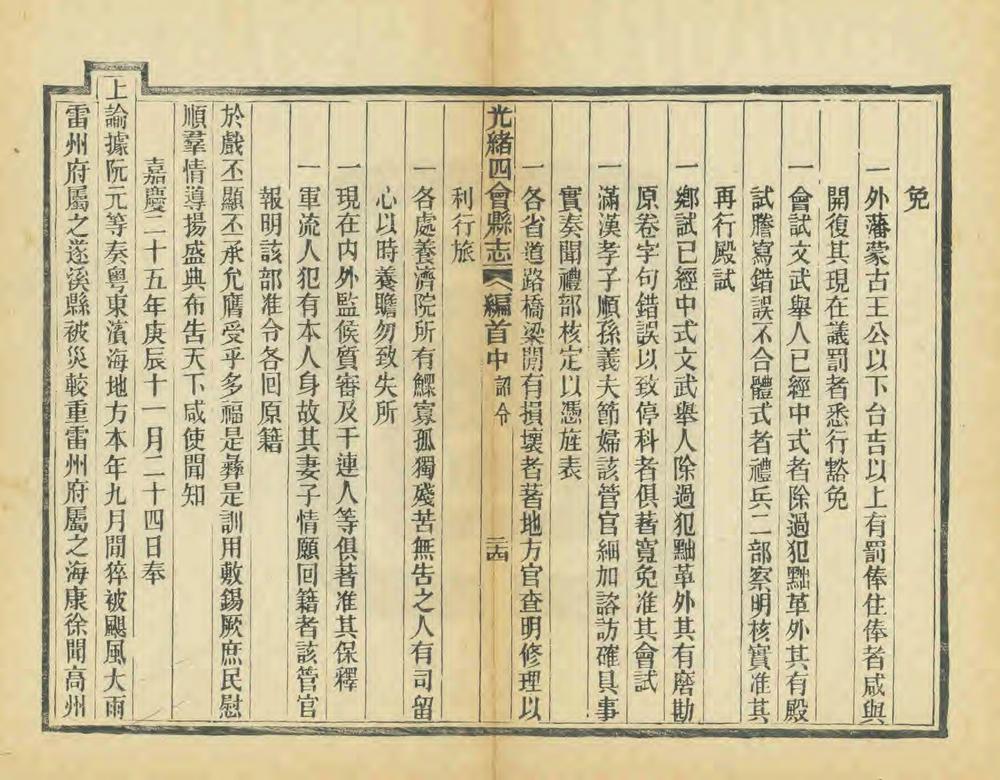 免
一外藩蒙古王公以下台吉以上有罰俸住俸者咸與
開復其現在議罰者悉行豁免
一會試文武舉人已經中式者除過犯黜革外其有殿
試謄寫錯誤不合體式者禮兵二部察明核實准其
再行殿試
一鄉試已經中式文武舉人除過犯黜革外其有磨勘
原卷字句錯誤以致停科者俱著寬免准其會試
一滿漢孝子順孫義夫節婦該管官細加諮訪確具事
實奏聞禮部核定以憑旌表
一各省道路橋梁間有損壞者著地方官查明修理以
光緒四會縣志 編首中 詔令 三四
利行旅
一各處養濟院所有鰥寡孤獨殘苦無告之人有司留
心以時養贍勿致失所
一現在內外監候質審及干連人等俱著准其保釋
一軍流人犯有本人身故其妻子情願回籍者該管官
報明該部准令各回原籍
於戲丕顯丕承允膺受乎多福是彝是訓用敷錫厥庶民慰
順羣情導揚盛典布告天下咸使聞知
嘉慶二十五年庚辰十一月二十四日奉
上諭據阮元等奏粵東濱海地方本年九月間猝被颶風大雨
雷州府屬之遂溪縣被災較重雷州府屬之海康徐聞高州